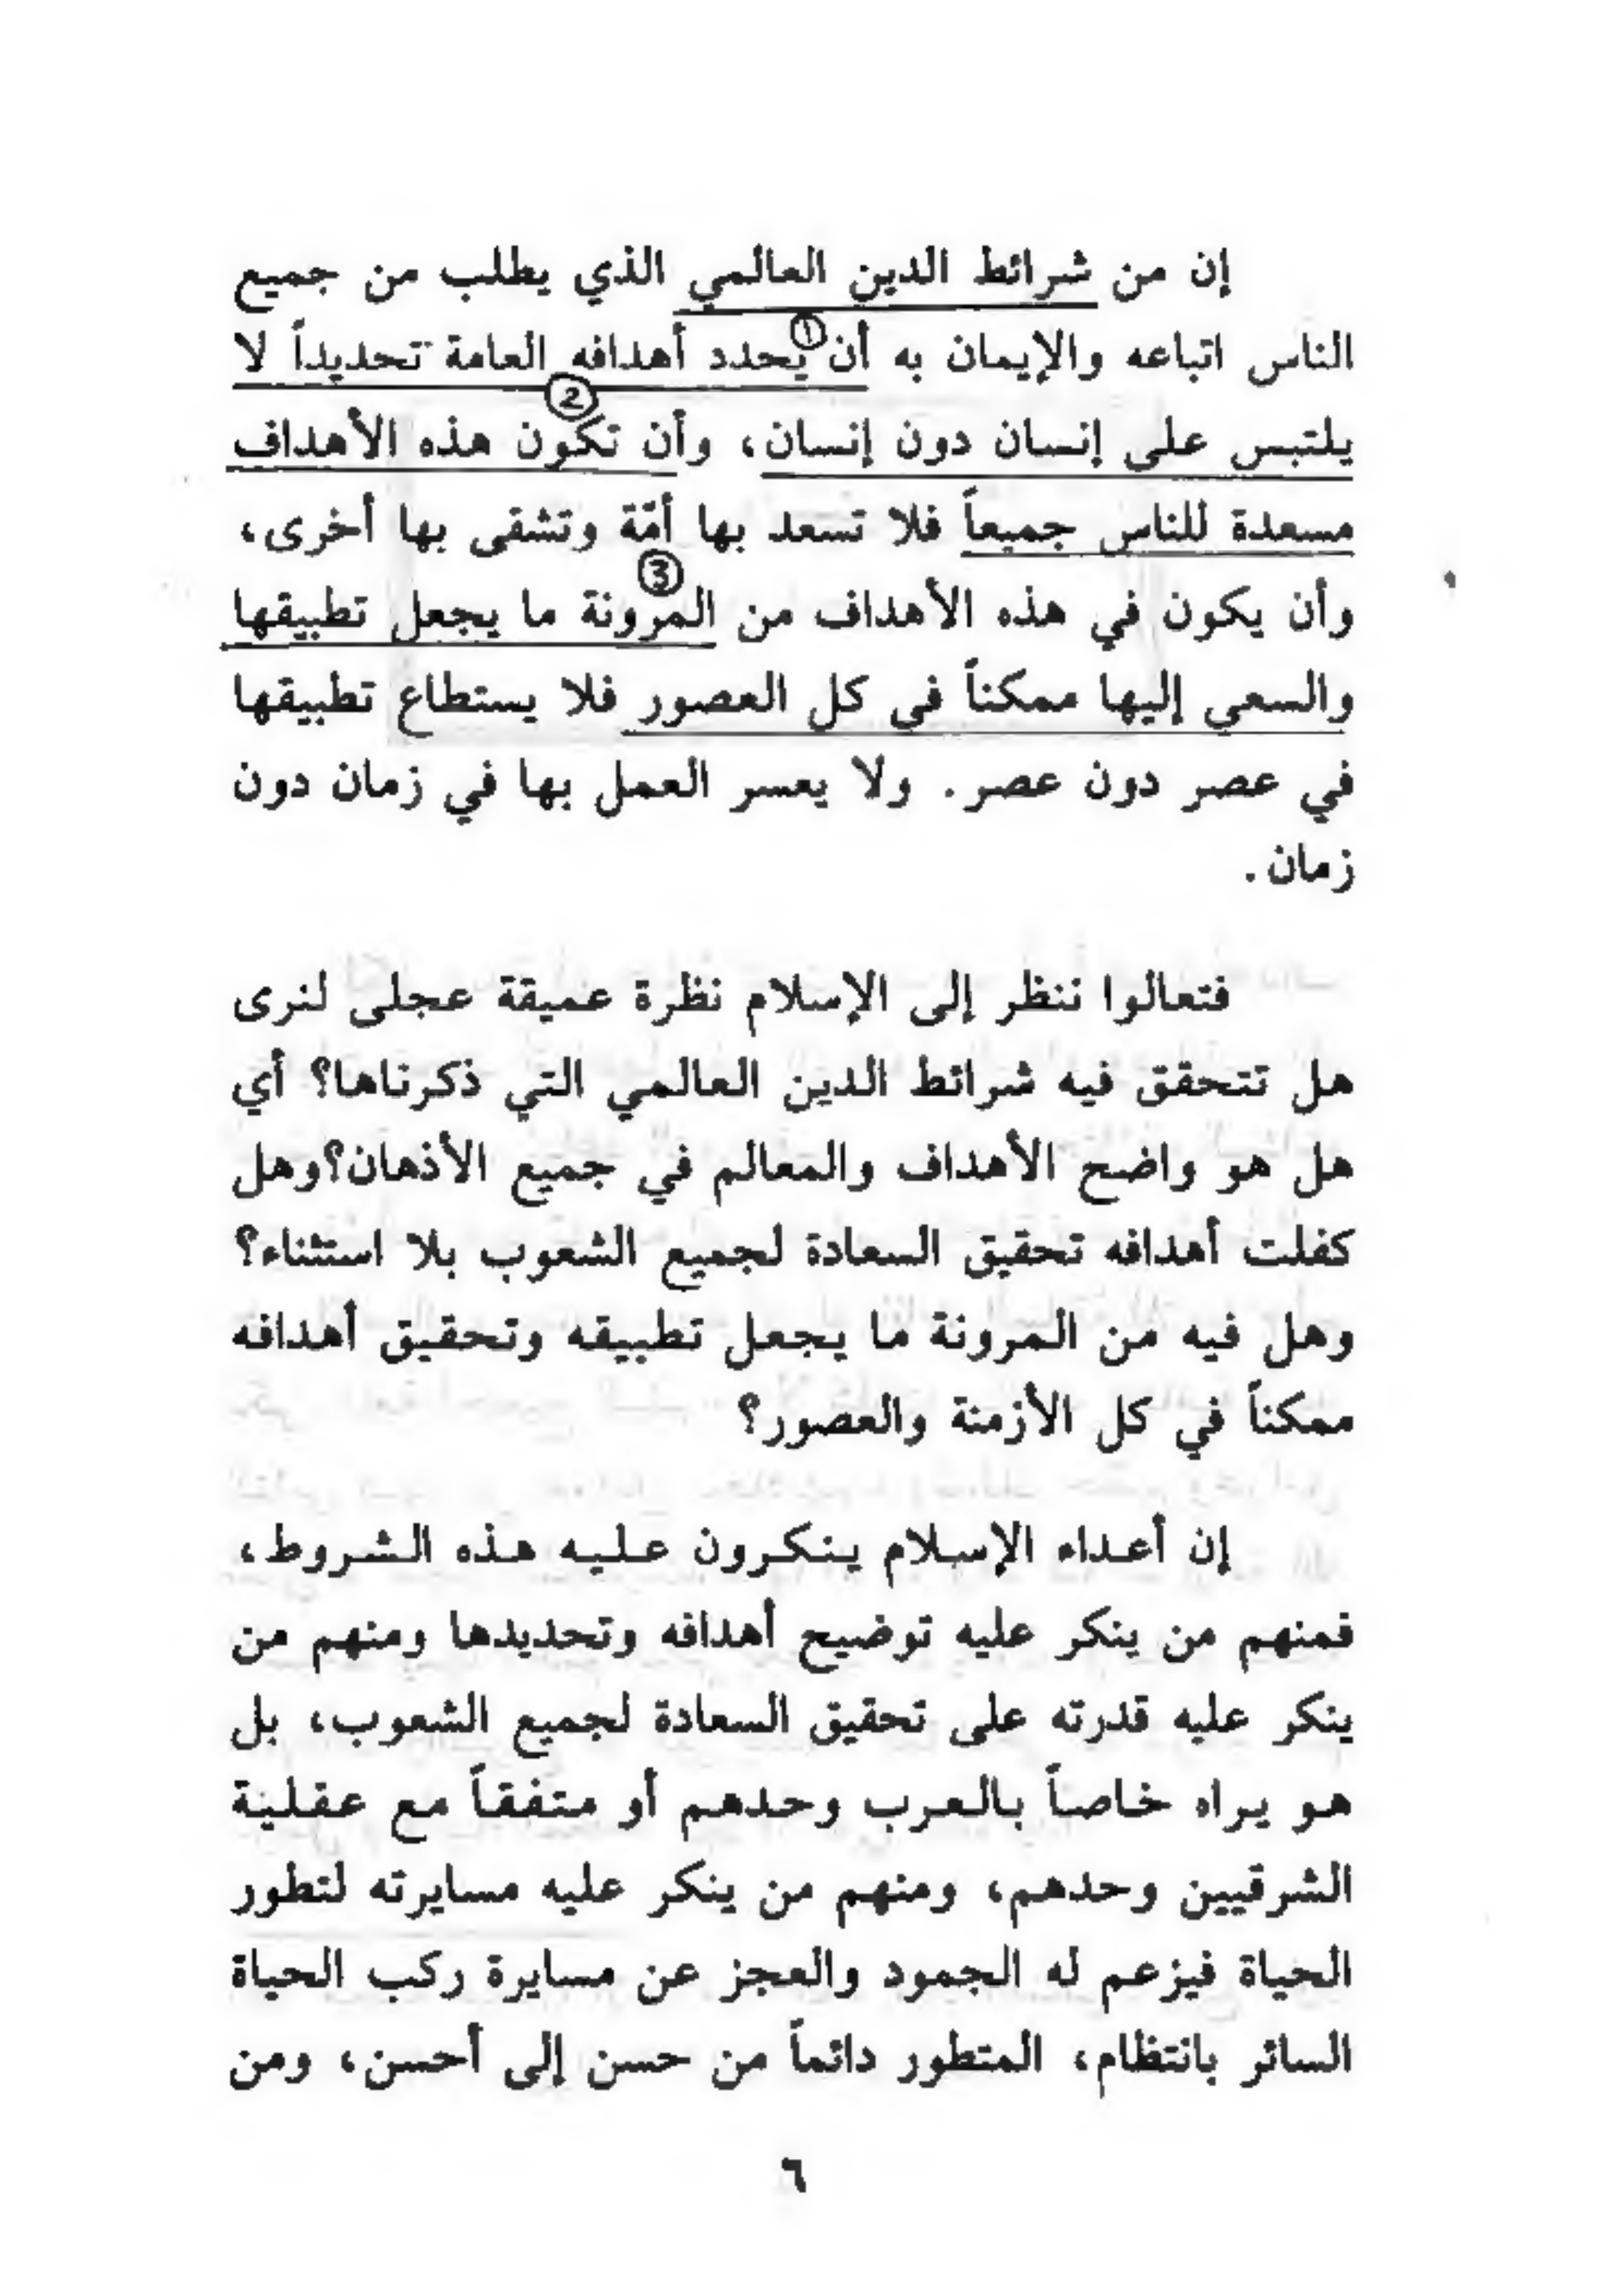 إن من شرائط الدين العالمي الذي يطلب من جميع
الناس اتباعه والإيمان به أن يحدد أهدافه العامة تحديداً لا
يلتبس على إنسان دون إنسان، وأن تكون هذه الأهداف
مسعدة للناس جميعاً فلا تسعد بها أمّة وتشقى بها أخرى،
وأن يكون في هذه الأهداف من المرونة ما يجعل تطبيقها
والسعي إليها ممكناً في كل العصور فلا يستطاع تطبيقها
في عصر دون عصر. ولا يعسر العمل بها في زمان دون
زمان.
فتعالوا ننظر إلى الإسلام نظرة عميقة عجلى لنرى
هل تتحقق فيه شرائط الدين العالمي التي ذكرناها؟ أي
هل هو واضح الأهداف والمعالم في جميع الأذهان؟وهل
كفلت أهدافه تحقيق السعادة لجميع الشعوب بلا استثناء؟
وهل فيه من المرونة ما يجعل تطبيقه وتحقيق أهدافه
ممكناً في كل الأزمنة والعصور؟
إن أعداء الإسلام ينكرون عليه هذه الشروط،
فمنهم من ينكر عليه توضيح أهدافه وتحديدها ومنهم من
ينكر عليه قدرته على تحقيق السعادة لجميع الشعوب، بل
هو يراه خاصاً بالعرب وحدهم أو متفقاً مع عقلية
الشرقيين وحدهم، ومنهم من ينكر عليه مسايرته لتطور
الحياة فيزعم له الجمود والعجز عن مسايرة ركب الحياة
السائر بانتظام، المتطور دائماً من حسن إلى أحسن، ومن
٦
①
②
③